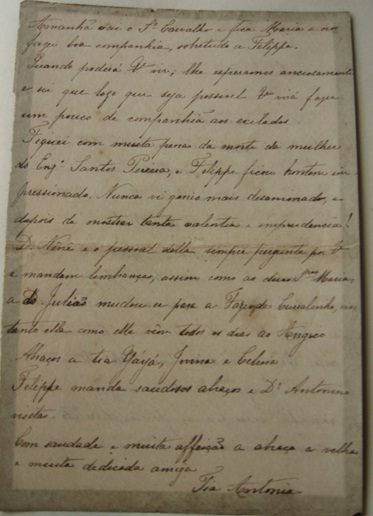 Amanhã sai o Sr Carvalho e fica Maria a nos
fazer boa companhia, sobretudo a Felippe.
Quando poderá Vª vir, lhe esperamos anciosamente
e sei que logo que seja possivel Vª virá fazer
um pouco de companhia aos exilados.
Fiquei com muita pena da morte da mulher
do Engº Santos Pereira, e Felippe ficou hontem im-
pressionado. Nunca vi genio mais desanimado,
depois de mostrar tanta valentia e imprudencia!
Dª Nênê e o pessoal della sempre pergunta por Vª
e mandam lembranças, assim como as duas Maria,
a do Julião mudou-se para a Fazenda
tanto ella como elle vêm todos os dias ao
Abraços a tia Yáyá, e Celina.
Felippe manda saudosos abraços e Dr Antonino
Com saudade e muita affeição a abraça a velha
e muito dedicada amiga
Tia Antonia